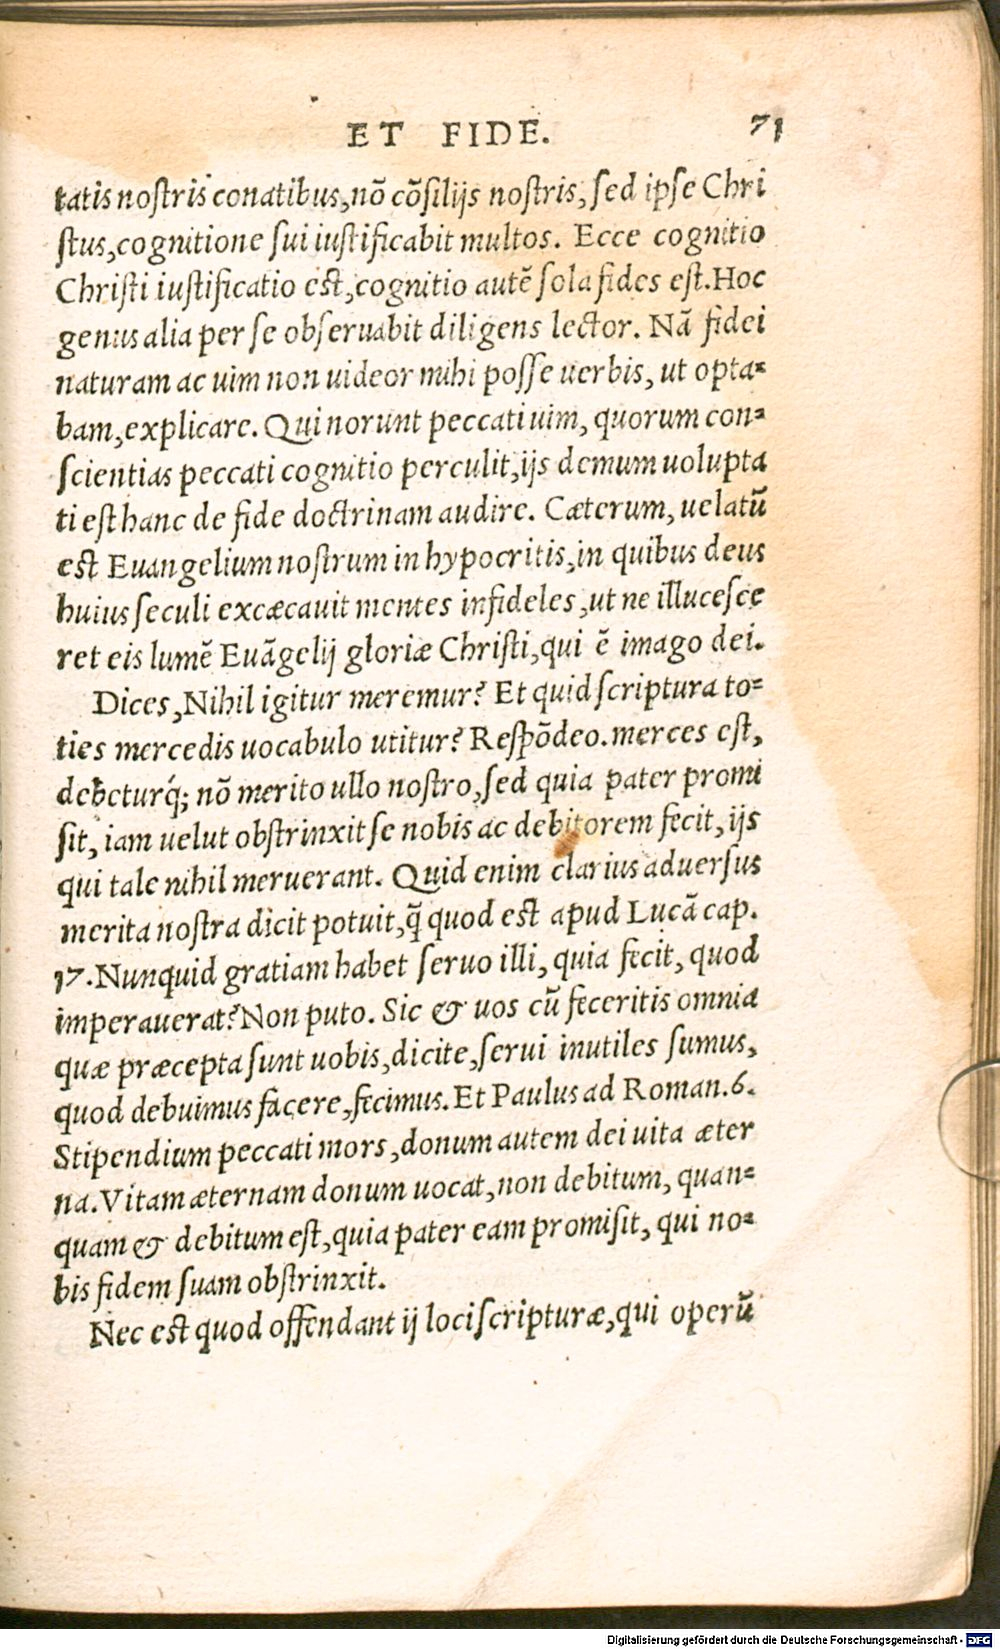 ET FIDE. 71
tatis noſtris conatibus, nõ cõſilijs noſtris, ſed ipſe Chri
ſtus, cognitione ſui iuſtificabit multos. Ecce cognitio
Chriſti iuſtificatio eſt, cognitio autẽ ſola fides eſt. Hoc
genus alia per ſe obſeruabit diligens lector. Nã fidei
naturam ac uim non uideor mihi poſſe uerbis, ut opta-
bam, explicare. Qui norunt peccati uim, quorum con-
ſcientias peccati cognitio perculit, ijs demum uolupta
ti eſt hanc de fide doctrinam audire. Cæterum, uelatũ
eſt Euangelium noſtrum in hypocritis, in quibus deus
huius ſeculi excæcauit mentes infideles, ut ne illuceſce
ret eis lumẽ Euãgelij gloriæ Chriſti, qui ẽ imago dei.
Dices, Nihil igitur meremur? Et quid ſcriptura to-
ties mercedis uocabulo utitur? Reſpõdeo. merces eſt,
debeturq́; nõ merito ullo noſtro, ſed quia pater promi
ſit, iam uelut obſtrinxit ſe nobis ac debitorem fecit, ijs
qui tale nihil meruerant. Quid enim clarius aduerſus
merita noſtra dicit potuit, q̃ quod eſt apud Lucã cap.
17. Nunquid gratiam habet ſeruo illi, quia fecit, quod
imperauerat? Non puto. Sic & uos cũ feceritis omnia
quæ præcepta ſunt uobis, dicite, ſerui inutiles ſumus,
quod debuimus facere, fecimus. Et Paulus ad Roman. 6.
Stipendium peccati mors, donum autem dei uita æter
na. Vitam æternam donum uocat, non debitum, quan-
quam & debitum eſt, quia pater eam promiſit, qui no-
bis fidem ſuam obſtrinxit.
Nec eſt quod offendant ij loci ſcripturæ, qui operũ
Digitalisierung gefördert durch die Deutsche Forschungsgemeinschaft - DFG